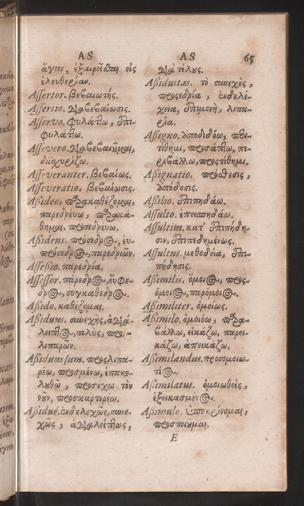 AS
ἄγειν, ἐξαιρεῖσθαι εἰς
ἐλευθερίαν.
Assertor. βεβαιωτής.
Asserito. διαβεβαίωσις.
Asservo. φυλάττω, ἐπι-
φυλάττω.
Assevero. διαβεβαιοῦμαι,
διισχυρίζω.
Asseveranter. βεβαίως.
Asseveratio. βεβαίωσις.
Assideo, παρακαθέζομαι,
παρεδρεύω, παρακά-
θημαι, προσεδρεύω.
Assidens.
πάρεδρος, παρεδρεύων.
Assessio. παρεδρία.
Assessor. πάρεδρος, σύνε-
δρος, συγκάθεδρος.
Assido. καθέζομαι.
Assiduus. συνεχὴς, ἀδιά-
λειπτος, πολὺς,
λιπαρῶν.
Assiduus sum. προσλιπα-
ρέω, προσμένω,
προσέχω τὸν
νοῦν, προσκαρτερέω.
Assiduè. ἐνδελεχῶς, συνε-
χῶς, ἀδιαλείπτως,
AS 65
Assiduitas. τὸ συνεχὲς,
προσεδρία, ἐνδελέ-
χεια, ἐπιμονὴ, λιπα-
ρία.
Assigno.
Assignatio. πρόσθεσις,
ἀπόδοσις.
Assilio. ἐπιπηδάω.
Assulto. ἐπεισπηδάω.
Assultim. κατ' ἐπιπήδη-
σιν, ἐπιπεδημένως.
Assultus. μεθοδεία, ἐπι-
πήδησις.
Assimilis. ὅμοιος, προσ-
όμοιος, παρόμοιος.
Assimiliter. ὁμοίως.
Assimilo. ὁμοιόω, παρα-
βάλλω, εἰκάζω, παρει-
κάζω, ἀπεικάζω.
Assimilandus. προσομοιω-
τέος.
Assimilatus. ὁμοιωθεὶς,
ἐξεικασμένος.
Assimulo. ὑποκρίνομαι,
προσποιοῦμαι.
E